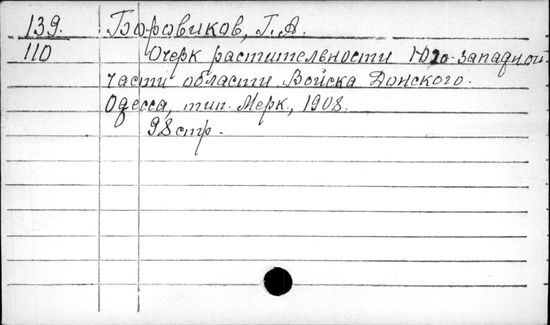 139. Боровиков, Г. А.
110 Очерк растительности Юго-западной
части области Войска Донского.
Одесса, тип. Мерк, 1908.
98 стр.